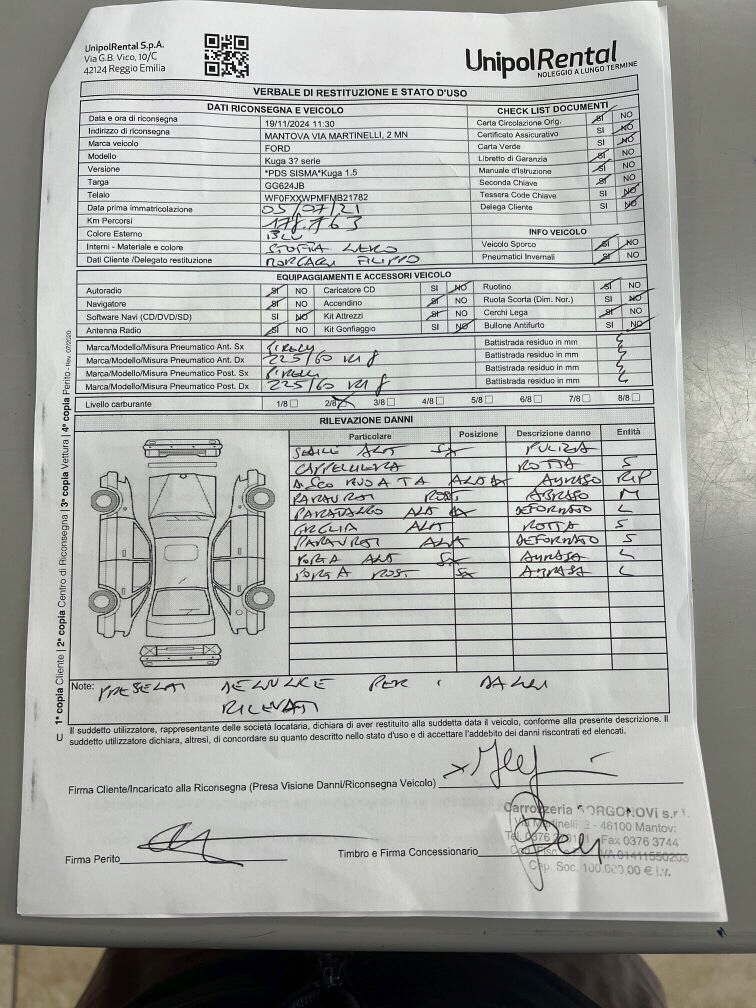 UnipolRental S.p.A.
Via G.B. Vico, 10/C
42124 Reggio Emilia
UnipolRental
NOLEGGIO A LUNGO TERMINE
VERBALE DI RESTITUZIONE E STATO D'USO
DATI RICONSEGNA E VEICOLO
Data e ora di riconsegna 19/11/2024 11:30
Indirizzo di riconsegna MANTOVA VIA MARTINELLI, 2 MN
Marca veicolo FORD
Modello Kuga 3? serie
Versione *PDS SISMA*Kuga 1.5
Targa GG624JB
Telaio WF0FXXWPMFMB21782
Data prima immatricolazione 05/07/21
Km Percorsi 178.763
Colore Esterno BLU
Interni - Materiale e colore STOFFA NERO
Dati Cliente /Delegato restituzione FILIPPO
CHECK LIST DOCUMENTI
Carta Circolazione Orig. SI NO
Certificato Assicurativo SI NO
Carta Verde SI NO
Libretto di Garanzia SI NO
Manuale d'Istruzione SI NO
Seconda Chiave SI NO
Tessera Code Chiave SI NO
Delega Cliente SI NO
INFO VEICOLO
Veicolo Sporco SI NO
Pneumatici Invernali SI NO
EQUIPAGGIAMENTI E ACCESSORI VEICOLO
Autoradio SI NO Caricatore CD SI NO Ruotino SI NO
Navigatore SI NO Accendino SI NO Ruota Scorta (Dim. Nor.) SI NO
Software Navi (CD/DVD/SD) SI NO Kit Attrezzi SI NO Cerchi Lega SI NO
Antenna Radio SI NO Kit Gonfiaggio SI NO Bullone Antifurto SI NO
Marca/Modello/Misura Pneumatico Ant. Sx PIRELLI Battistrada residuo in mm
Marca/Modello/Misura Pneumatico Ant. Dx 225/60 R18 Battistrada residuo in mm
Marca/Modello/Misura Pneumatico Post. Sx PIRELLI Battistrada residuo in mm
Marca/Modello/Misura Pneumatico Post. Dx 225/60 R18 Battistrada residuo in mm
Livello carburante 1/8 2/8 3/8 4/8 5/8 6/8 7/8 8/8
RILEVAZIONE DANNI
Particolare Posizione Descrizione danno Entità
SEDILE ANT SX PULIZIA
CAPPELLIERA ROTTA S
DISCO RUOTA ANT DX ABRASO RIP
PARAURTI POST ABRASO M
PARAFANGO ANT DX DEFORMATO L
GRIGLIA ANT ROTTA S
PARAURTI ANT DEFORMATO S
PORTA ANT SX ABRASA L
PORTA POST SX ABRASA L
Note: PRESENTI DENUNCE PER I DANNI
RILEVATI
Il suddetto utilizzatore, rappresentante delle società locataria, dichiara di aver restituito alla suddetta data il veicolo, conforme alla presente descrizione. Il
suddetto utilizzatore dichiara, altresì, di concordare su quanto descritto nello stato d'uso e di accettare l'addebito dei danni riscontrati ed elencati.
Firma Cliente/Incaricato alla Riconsegna (Presa Visione Danni/Riconsegna Veicolo)
Firma Perito
Timbro e Firma Concessionario
Carrozzeria BORGONOVI s.r.l.
Via Martinelli, 2 - 46100 Mantov
Fax 0376 3744
Cap. Soc. 100.000,00 € i.v.
1ª copia Cliente | 2ª copia Centro di Riconsegna | 3ª copia Vettura | 4ª copia Perito - rev. 07/2020